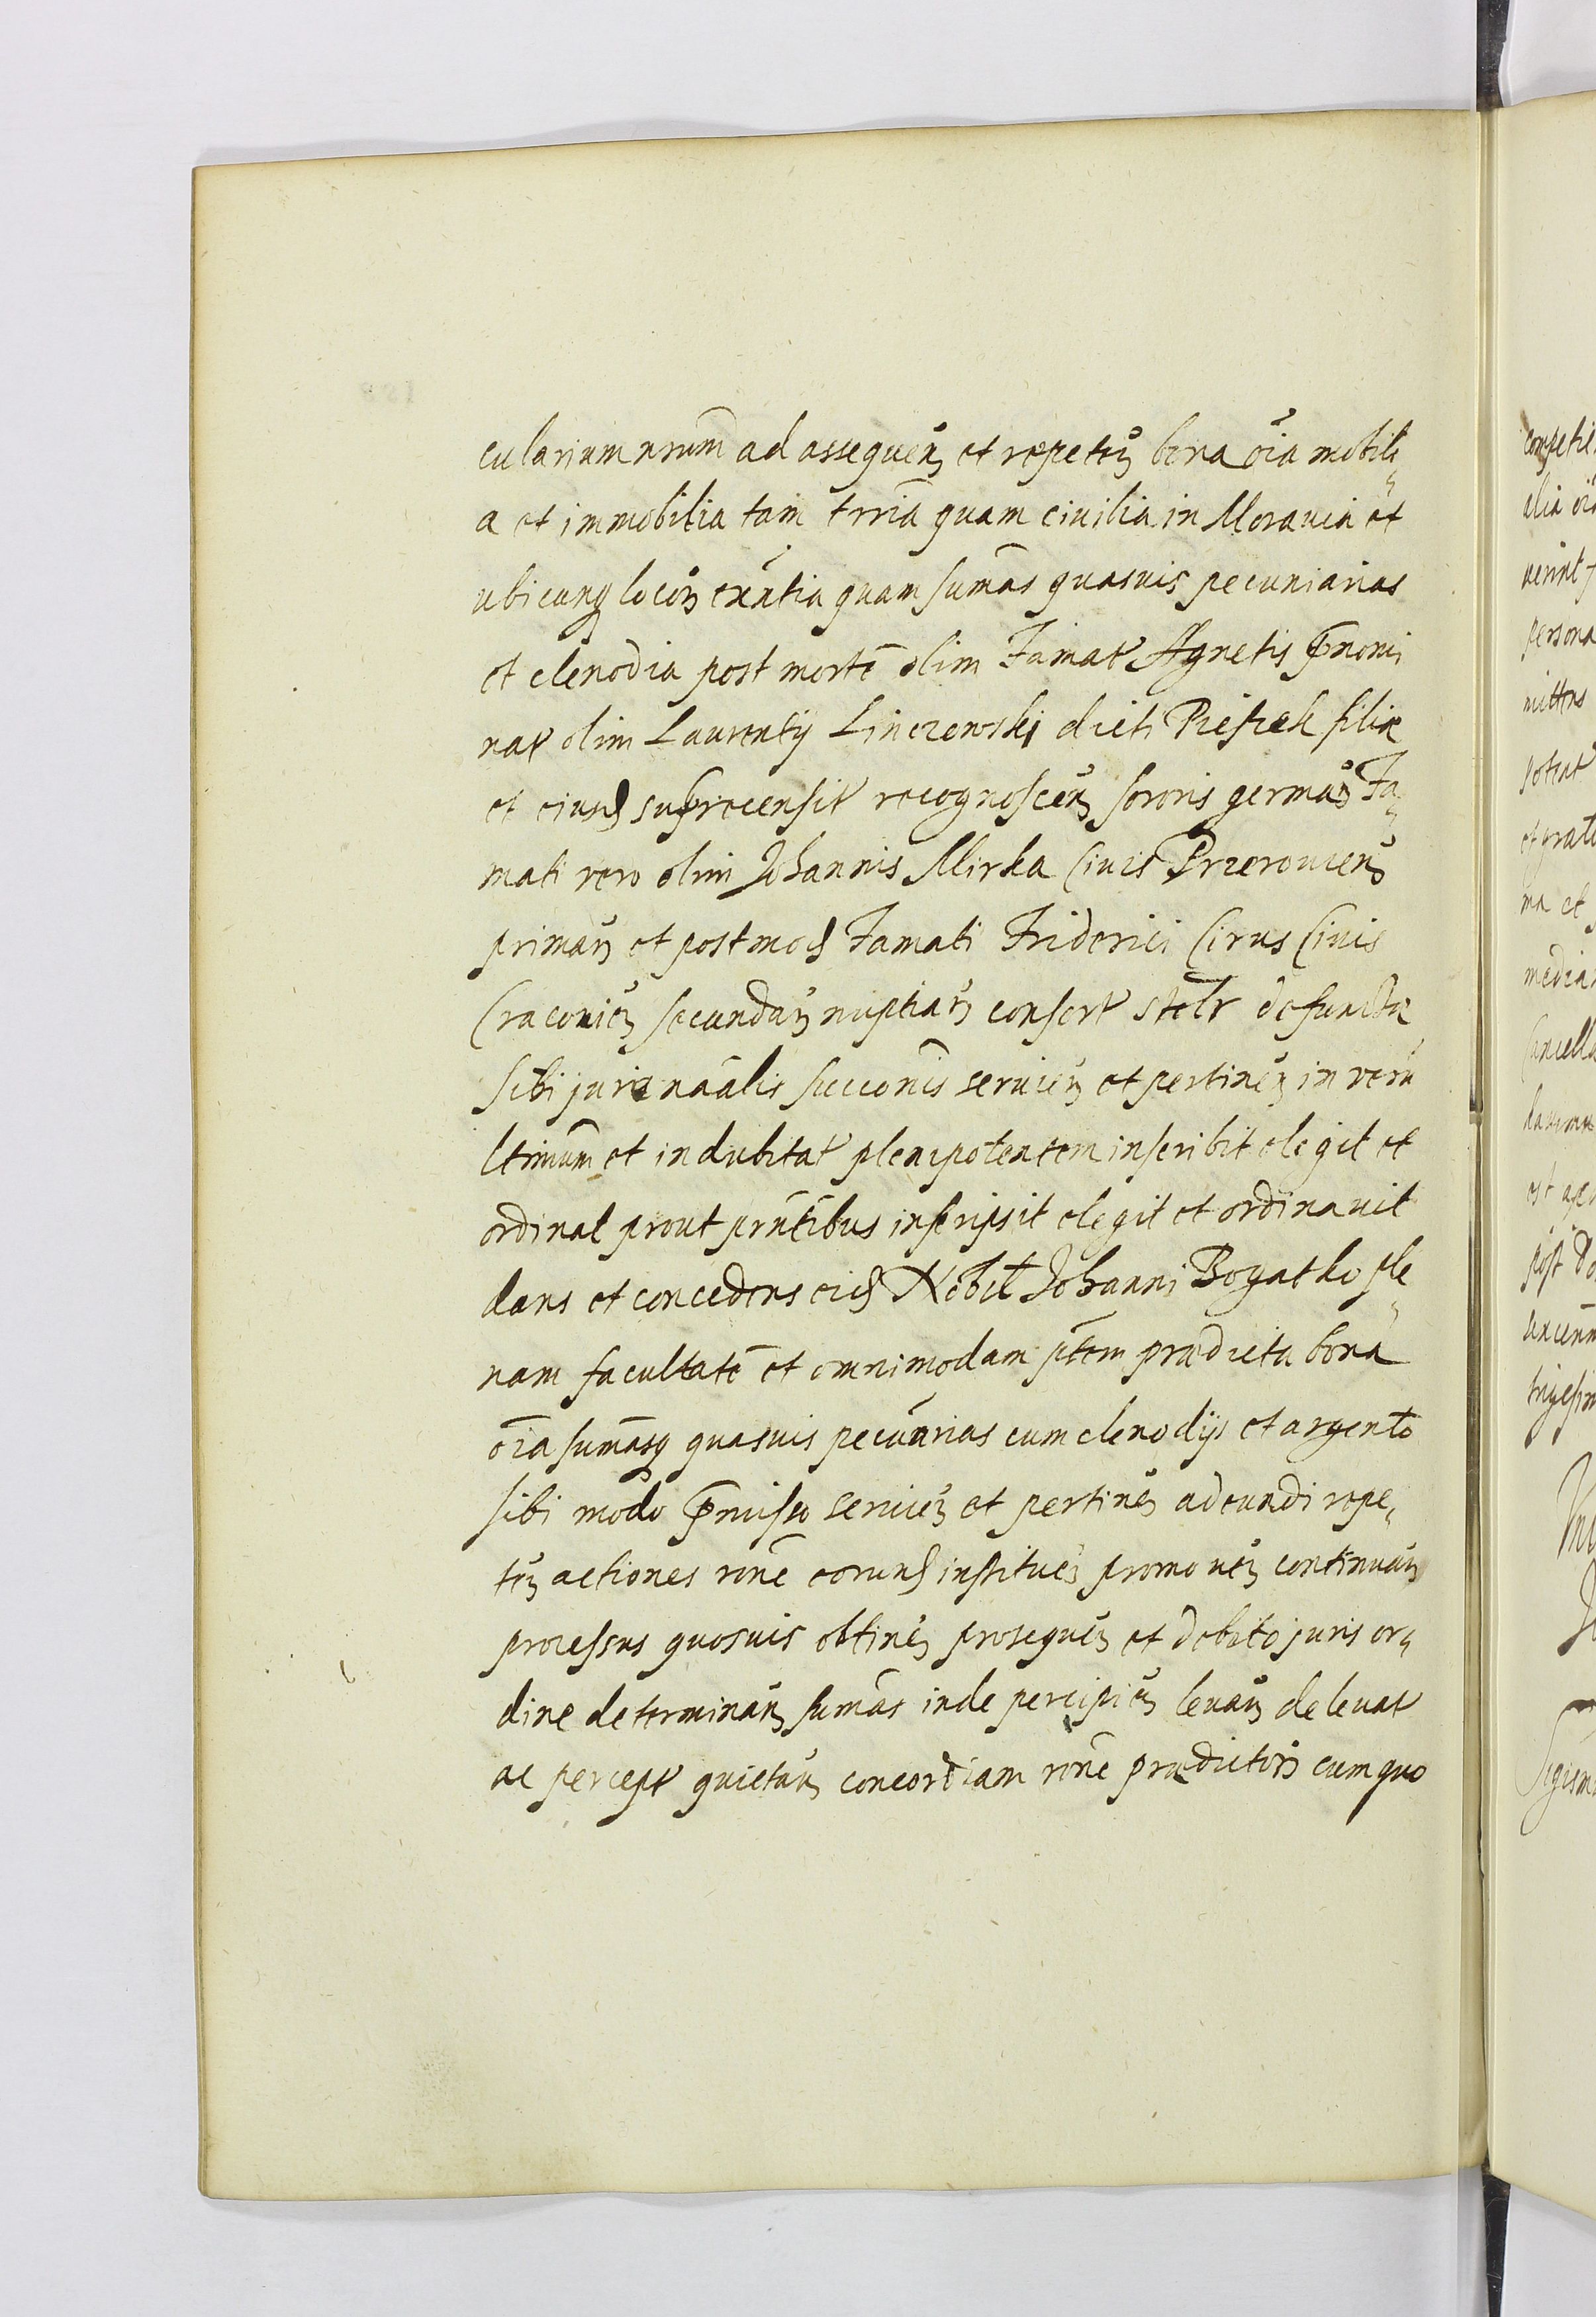 cularium nrum̄ ad assequeñ et repeteñ bona oīa mobili„
a et immobilia tam trriā quam ciuilia in Morauia et
vbicunq locoꝝ exn̄tia quam sumās quasuis pecuniarias
et clenodia post mortē olim Famat Agnetis p̄nomi
nat olim Laurentij Linczewski dicti Piesżek filiæ
et eiusd suprecensit recognosceñ sororis germañ Fa„
mati vero olim Johannis Mirka Ciuis Przerouieñ
primaꝝ et postmod Famati Friderici Cirus Ciuis
Cracouieñ secundaꝝ nuptiaꝝ consort sterlr defunctæ
sibi juri naālis succonīs seruieñ et pertineñ in verū
ltimum̄ et indubitat plenipotentem inscribit elegit et
ordinat prout pn̄tibus inscripsit elegit et ordinauit
dans et concedens eid Nobil Johanni Bogatko ple„
nam facultatē et omnimodam ptēm prædicta bona
oīa sumāsq quasuis pecūnrias cum clenodijs et argento
sibi modo p̄misso seruieñ et pertineñ adeundi repe„
teñ actiones ronē eorund instituеñ promoueñ continuañ
processus quosuis obtineñ prosequeñ et debito juris or„
dine determinañ sumās inde percipieñ leuañ de leuat
ac percept quietañ concordiam ronē prædictoꝝ cum quo